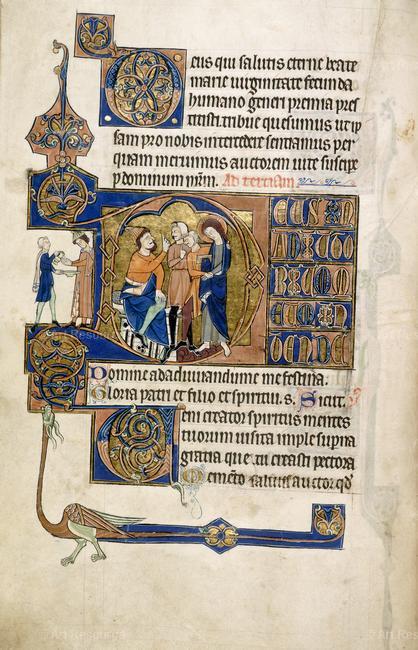 Deus qui salutis eterne beate
marie uirginitate fecunda
humano generi premia pres
titisti. tribue quesumus ut ip
sam pro nobis intercedere sentiamus per
quam meruimus auctorem uite suscipe
p dominum nrm. Ad tertiam
DEUS IN
ADIUTO
RIUM M
EUM IN
TENDE
Domine ad adiuuandum me festina.
Gloria patri et filio et spiritui. s. Sicut.
Veni creator spiritus mentes
tuorum uisita imple supna
gratia que tu creasti pectora
Memento salutis auctor qd